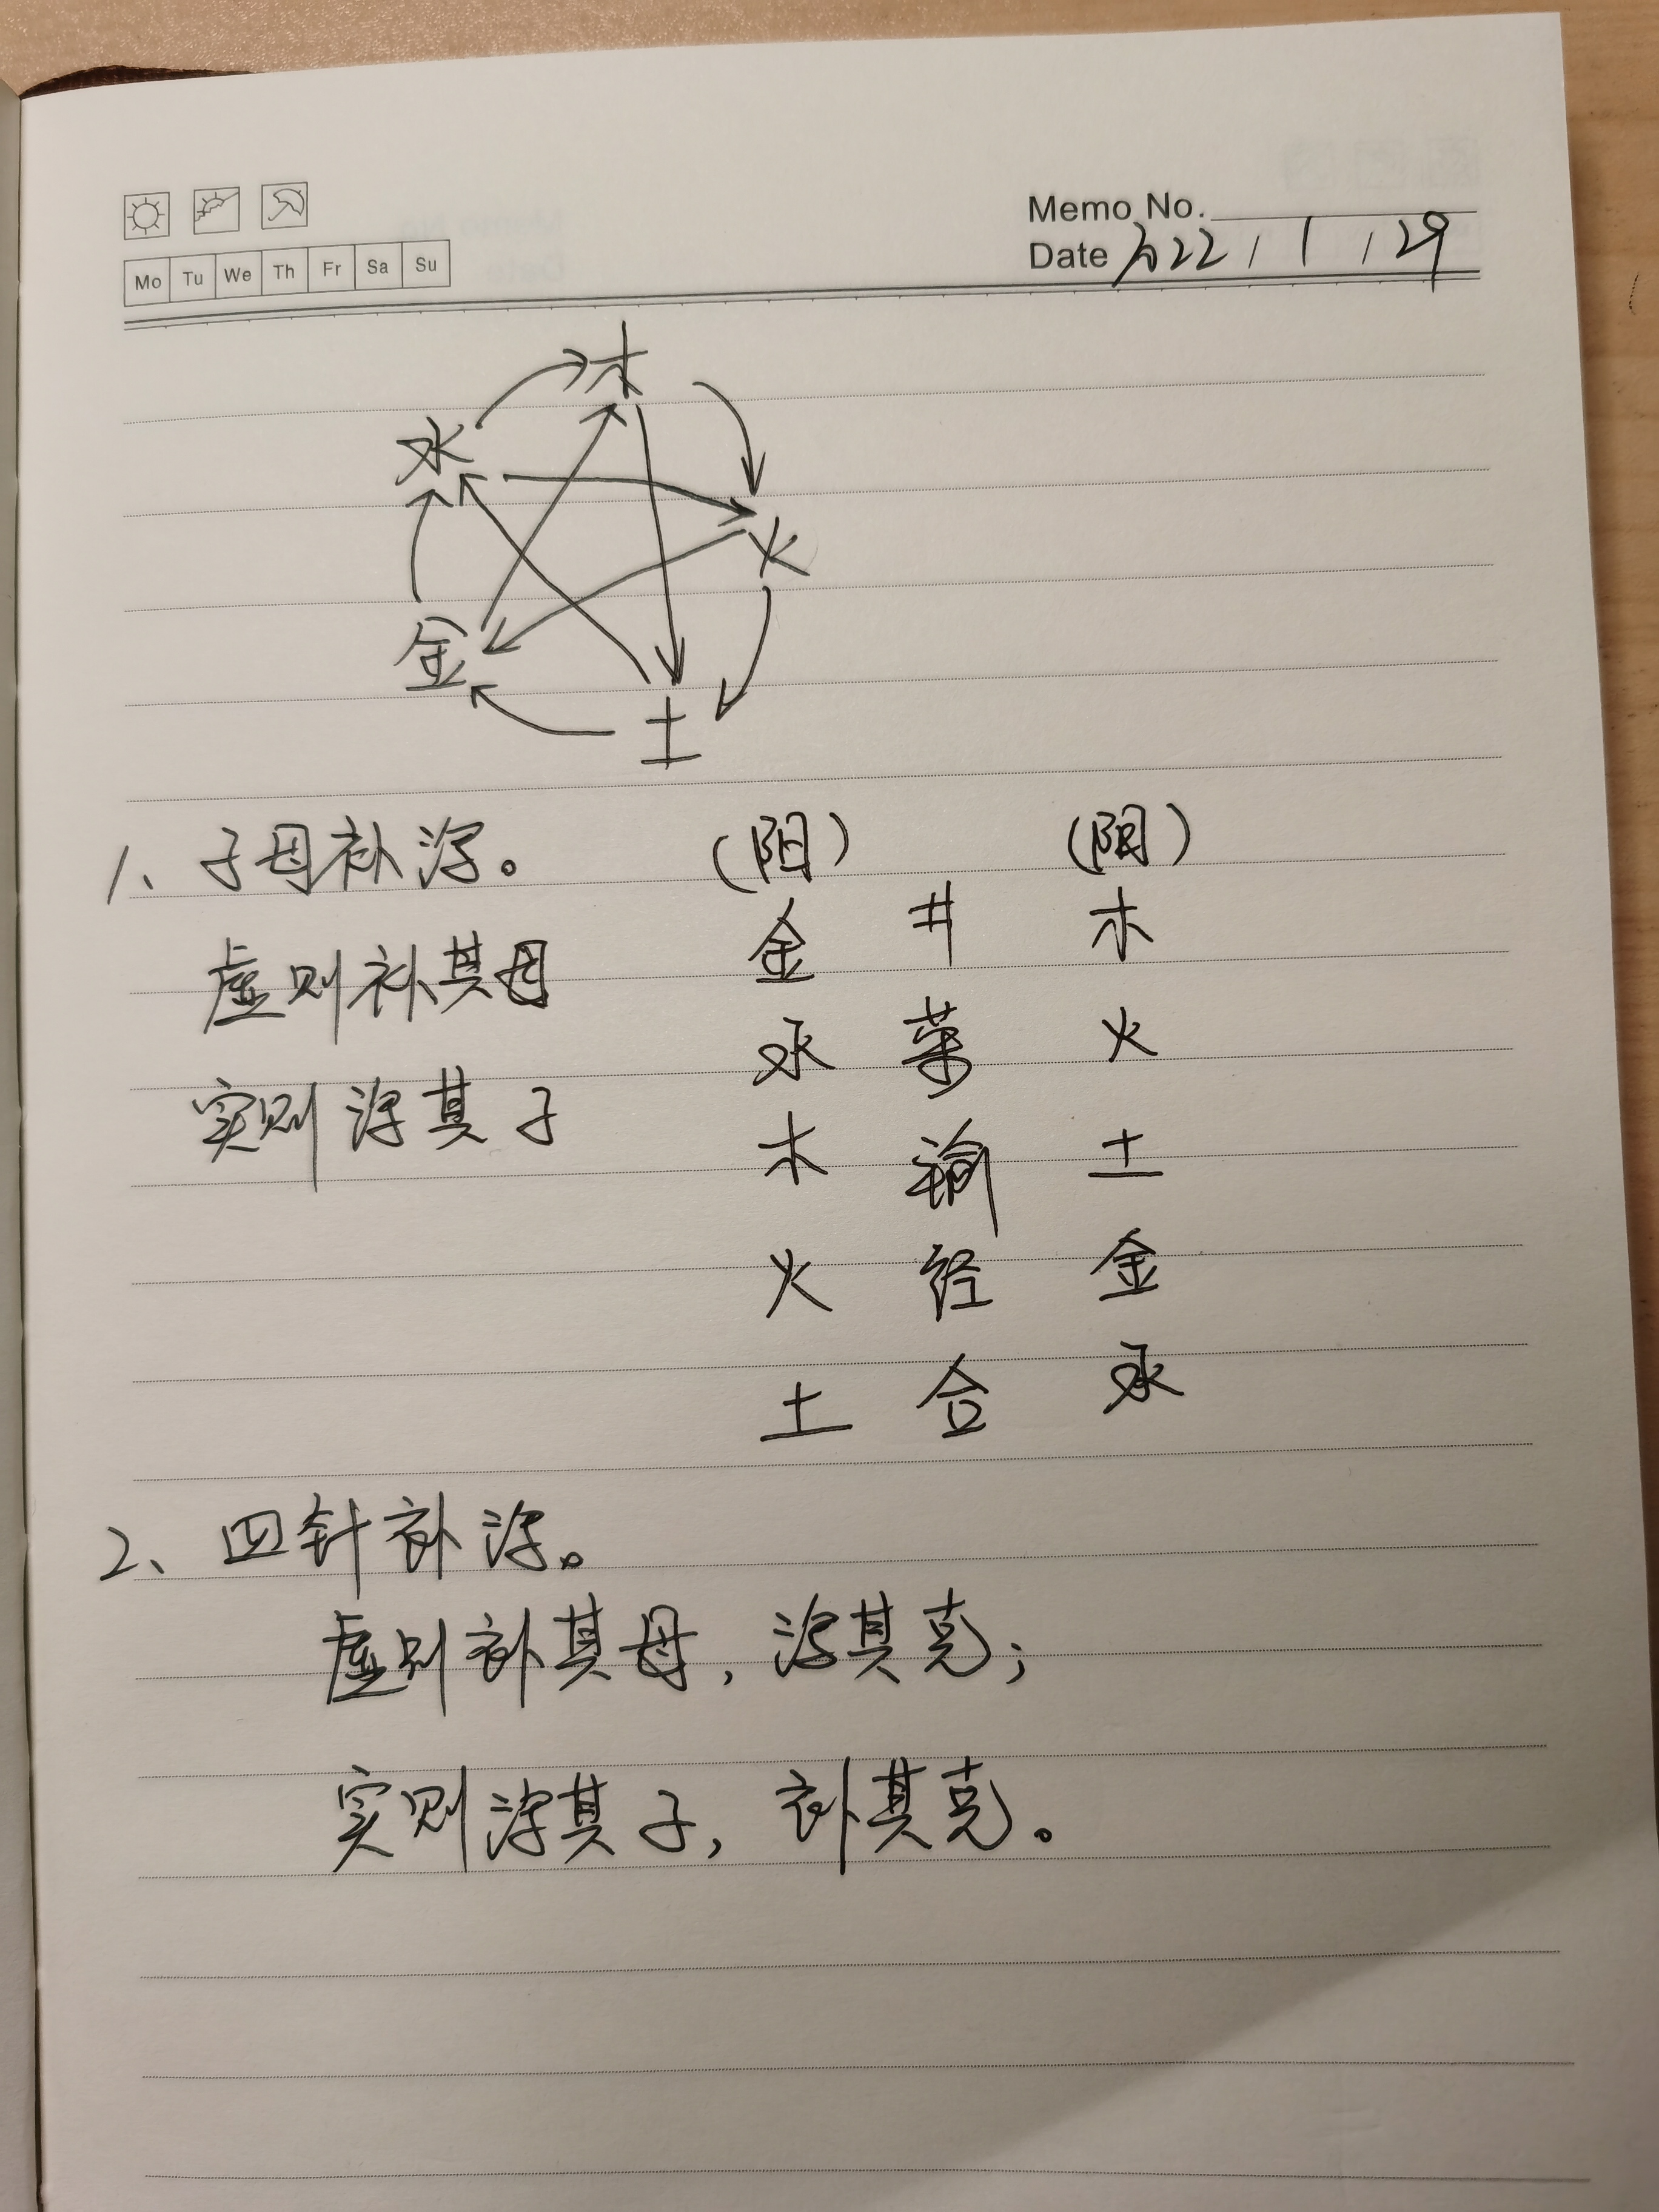 Memo No.
Date 2022 / 1 / 29
Mo Tu We Th Fr Sa Su
木
水
火
金
土
1、子母补泻。 (阳) (阴)
金 井 木
虚则补其母
水 荥 火
实则泻其子
木 输 土
火 经 金
土 合 水
2、四针补泻。
虚则补其母，泻其克；
实则泻其子，补其克。